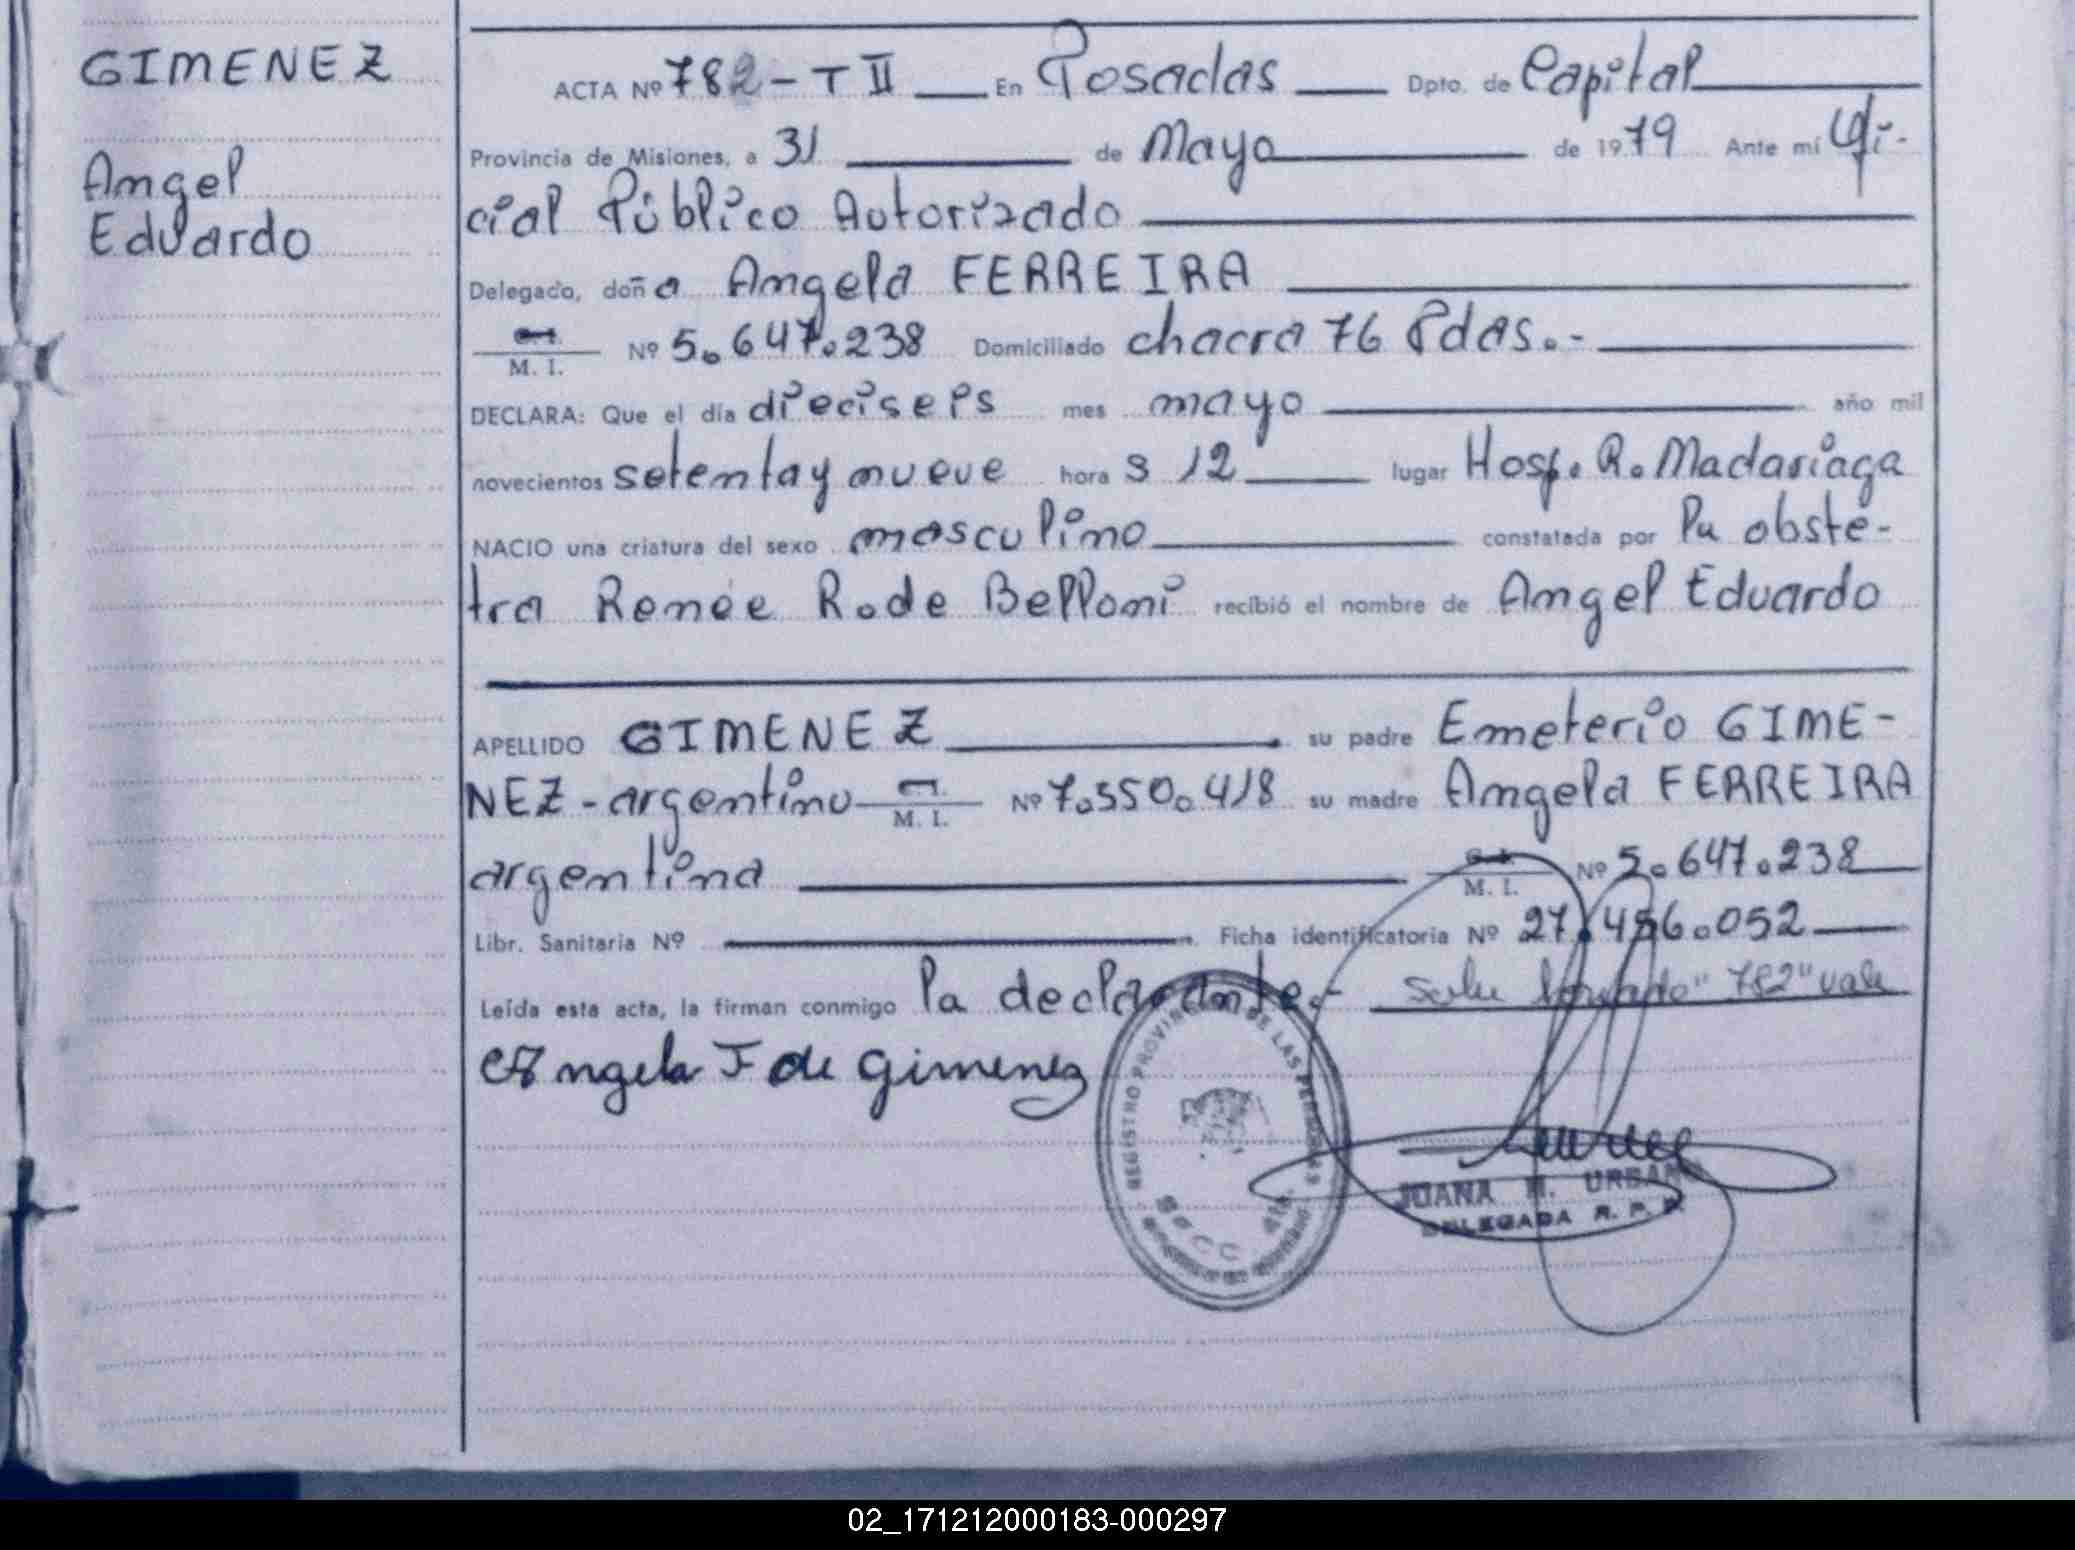 GIMENEZ
Angel
Eduardo
ACTA Nº 782 - T II En Posadas Dpto. de Capital
Provincia de Misiones, a 31 de Mayo de 1979 Ante mí Ofi-
cial Público Autorizado
Delegado, doña Angela FERREIRA
M. I. Nº 5.647.238 Domiciliado chacra 76 Pdas.-
DECLARA: Que el día dieciseis mes mayo año mil
novecientos setenta y nueve hora s 12 lugar Hosp. R. Madariaga
NACIO una criatura del sexo masculino constatada por la obste-
tra Renée R. de Belloni recibió el nombre de Angel Eduardo
APELLIDO GIMENEZ su padre Emeterio GIME-
NEZ - argentino M. I. Nº 7.550.418 su madre Angela FERREIRA
argentina M. I. Nº 5.647.238
Libr. Sanitaria Nº Ficha identificatoria Nº 27.456.052
Leída esta acta, la firman conmigo la declarante.- "782" vale
Angela F de Gimenez
REGISTRO PROVINCIAL DE LAS PERSONAS
SECC. 4ta.
JUANA M. URBAN
DELEGADA R. P. P.
02_171212000183-000297